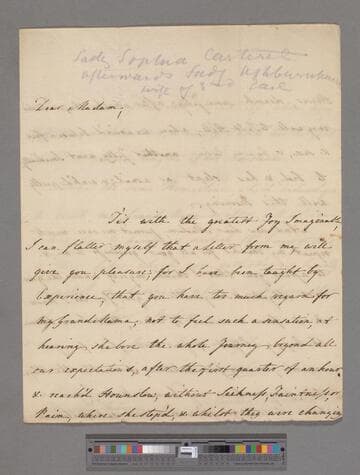 Lady Sophia Carteret
afterwards Lady Ashburnham
wife of 2nd Earl
Dear Madam,
Tis with the greatest Joy Imaginable,
I can flatter myself that a letter from me, will
give you pleasure; for I have been taught by
Experience, that you have too much regard for
my GrandMama, not to feel such a sensation, at
hearing she bore the whole Journey beyond all
our expectations, after the first quarter of an hour
& reach'd Hounslow, without Sickness, Faintness, or
Pain, where she stop'd, & whilst they were changing